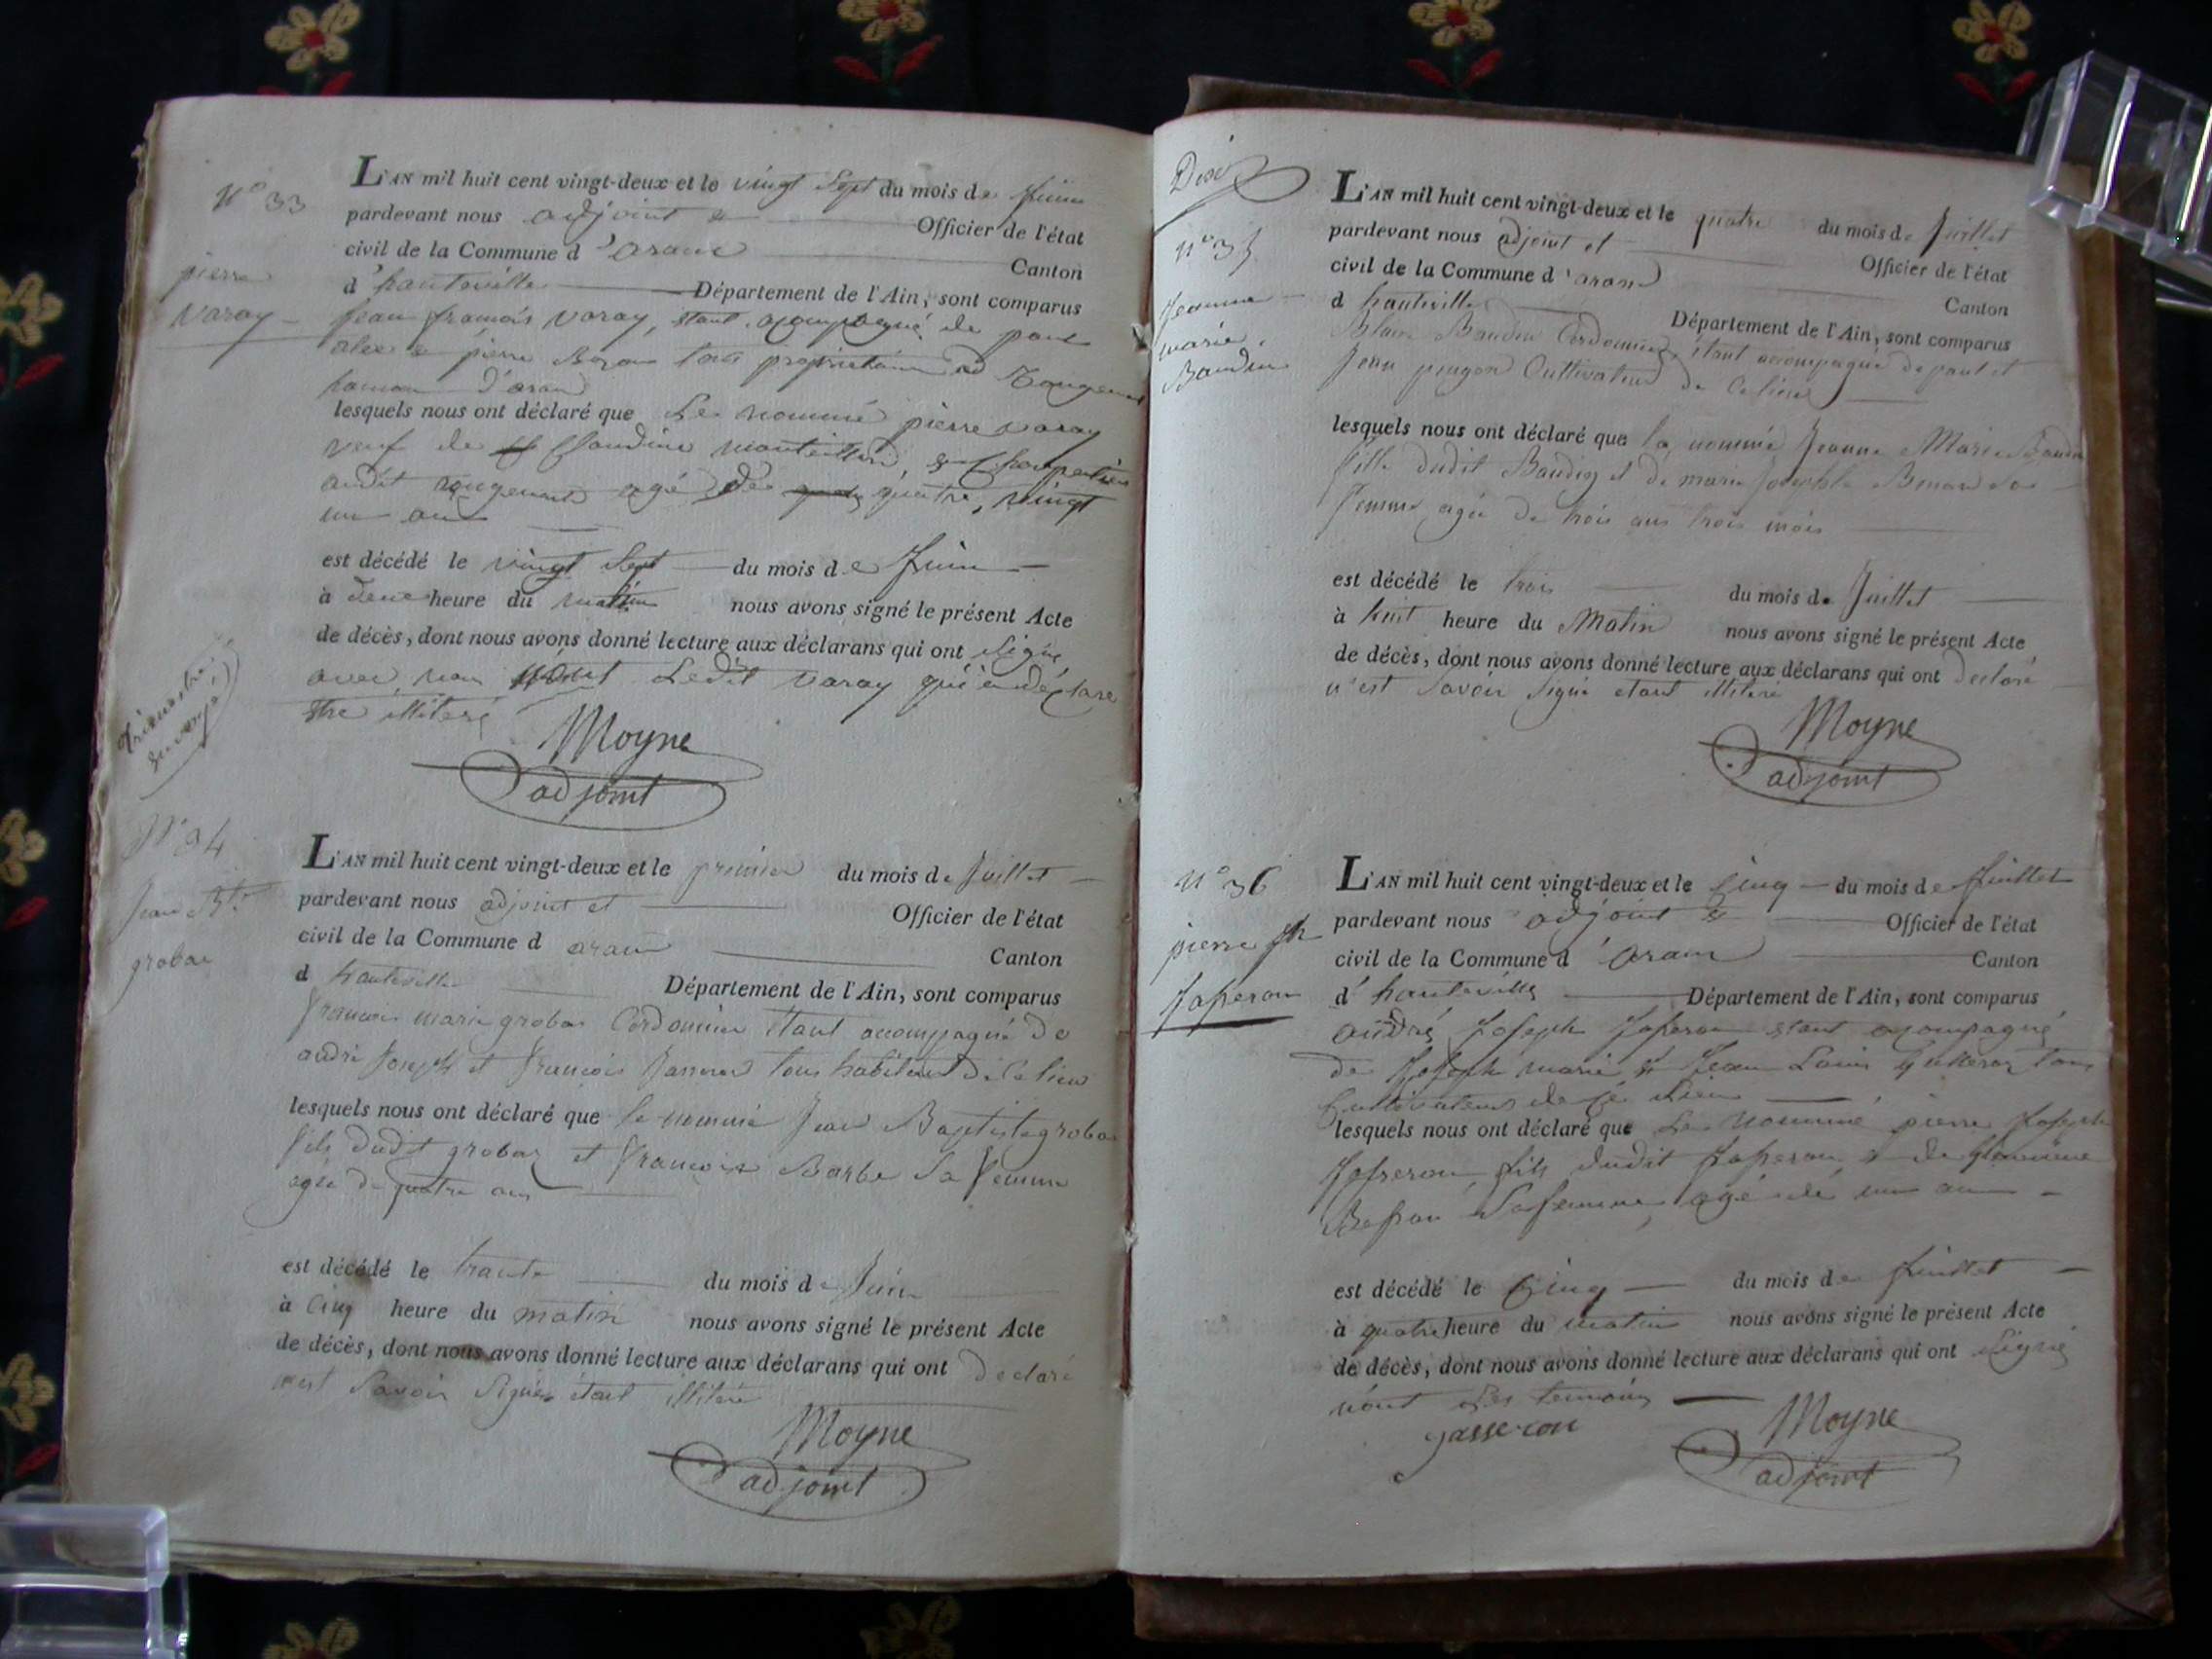 N° 33
pierre
varay
L'AN mil huit cent vingt-deux et le vingt Sept du mois de Juin
pardevant nous adjoint et Officier de l'état
civil de la Commune d'aranc
Canton
d'hauteville Département de l'Ain, sont comparus
Jean françois varay, étant acompagné de paul
et pierre tous propriétaire
d'aranc
lesquels nous ont déclaré que Le nommé pierre varay
veuf de Claudine
audit rougemont agé de quatre, vingt
un an
est décédé le vingt Sept du mois de Juin
à deux heure du matin nous avons signé le présent Acte
de décès, dont nous avons donné lecture aux déclarans qui ont signé
avec nous non Ledit varay qui a déclaré
être illiteré
Moyne
adjoint
N° 34
Jean Bte
grobas
L'AN mil huit cent vingt-deux et le premier du mois de Juillet
pardevant nous adjoint et Officier de l'état
civil de la Commune d aranc
Canton
d hauteville Département de l'Ain, sont comparus
françois marie grobas Cordonnier étant accompagné de
andré Joseph et françois tous habitant de Ce lieu
lesquels nous ont déclaré que le nommé Jean Baptiste grobas
fils dudit grobas et françoise Barbe Sa femme
agée de quatre ans
est décédé le trante du mois de Juin
à Cinq heure du matin nous avons signé le présent Acte
de décès, dont nous avons donné lecture aux déclarans qui ont declaré
n'est Savoir Signer étant illiteré
Moyne
adjoint
N° 35
Jeanne
marie
Baudin
L'AN mil huit cent vingt-deux et le quatre du mois de Juillet
pardevant nous adjoint et Officier de l'état
civil de la Commune d'aranc
Canton
d hauteville Département de l'Ain, sont comparus
Baudin Cordonnier, étant accompagné de paul et
Jean Cultivateur de Ce lieu
lesquels nous ont déclaré que la nommé Jeanne Marie Baudin
fille dudit Baudin et de marie Josephte Sa
femme agée de trois ans trois mois
est décédé le trois du mois de Juillet
à huit heure du Matin nous avons signé le présent Acte
de décès, dont nous avons donné lecture aux déclarans qui ont declaré
n'est Savoir Signé étant illiteré
Moyne
adjoint
N° 36
pierre Jh
Jasseron
L'AN mil huit cent vingt-deux et le Cinq du mois de Juillet
pardevant nous adjoint et Officier de l'état
civil de la Commune d'aranc
Canton
d'hauteville Département de l'Ain, sont comparus
andré Joseph Jasseron étant acompagné
de Joseph marie et Jean Louis tous
Cultivateurs de Ce Lieu
lesquels nous ont déclaré que Le Nommé pierre Joseph
Jasseron fils dudit Jasseron et de
Sa femme, agé de un an
est décédé le Cinq du mois de Juillet
à quatre heure du matin nous avons signé le présent Acte
de décès, dont nous avons donné lecture aux déclarans qui ont Signé
non Les temoins
jasseron
Moyne
adjoint